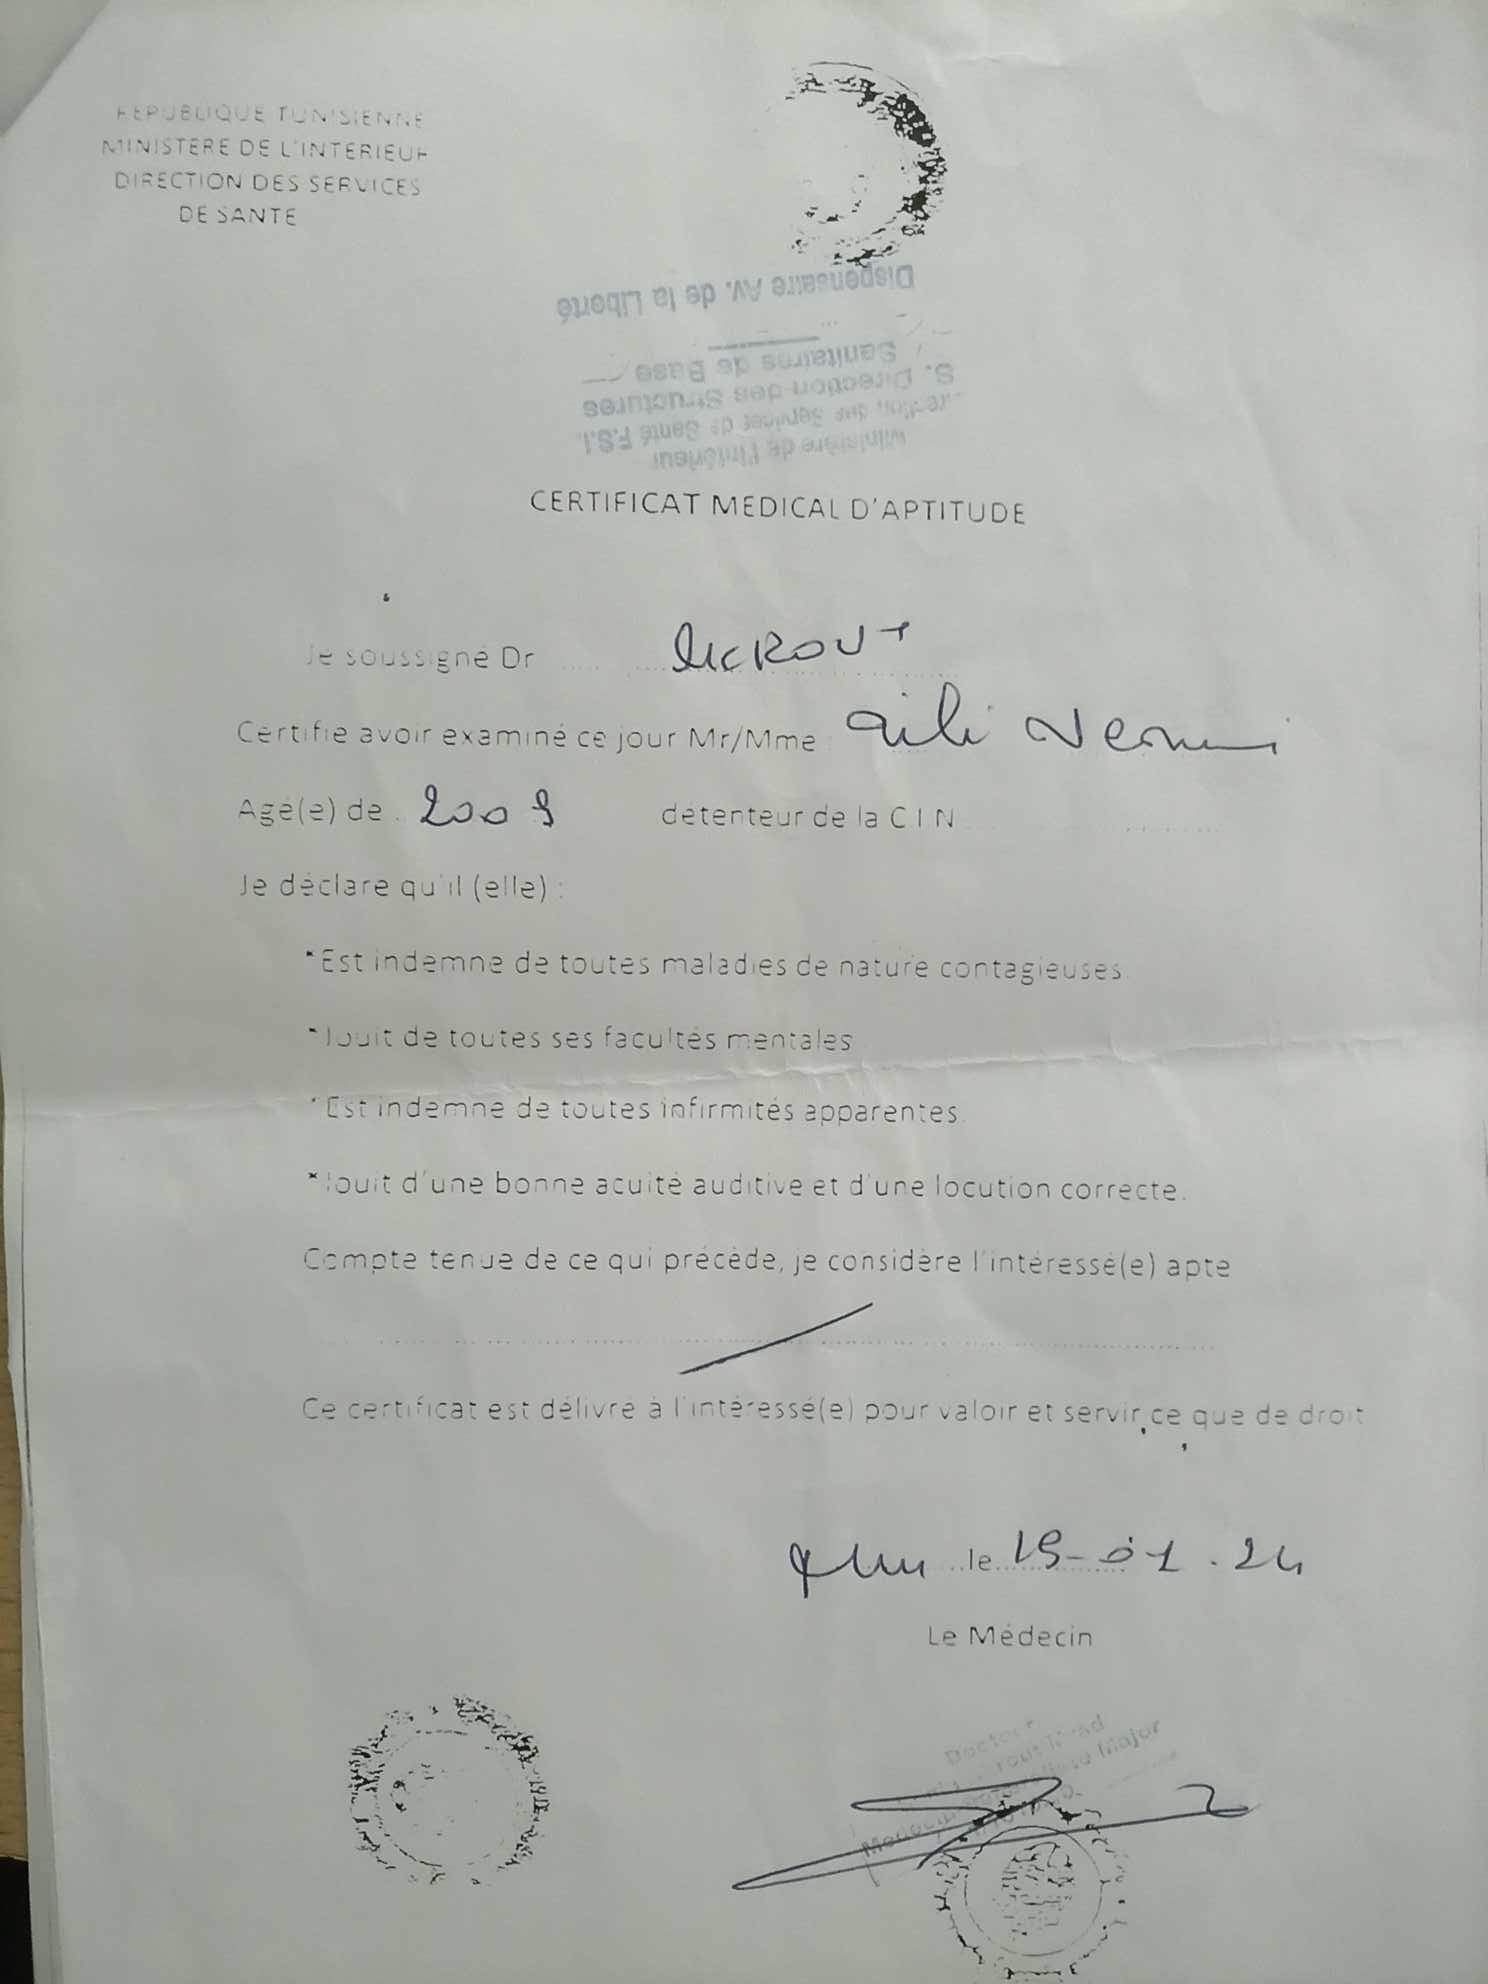 REPUBLIQUE TUNISIENNE
MINISTERE DE L'INTERIEUR
DIRECTION DES SERVICES
DE SANTE
Dispensaire Av. de la Liberté
Sanitaires de Base
S. Direction des Structures
des Services de Santé F.S.I.
Ministère de l'Intérieur
CERTIFICAT MEDICAL D'APTITUDE
Je soussigné Dr
Certifie avoir examiné ce jour Mr/Mme
Agé(e) de 2009 détenteur de la C I N
Je déclare qu'il (elle) :
*Est indemne de toutes maladies de nature contagieuses.
*Jouit de toutes ses facultés mentales
*Est indemne de toutes infirmités apparentes.
*Jouit d'une bonne acuité auditive et d'une locution correcte.
Compte tenue de ce qui précède, je considère l'intéressé(e) apte
Ce certificat est délivré à l'intéressé(e) pour valoir et servir ce que de droit
le 19-01.24
Le Médecin
Docteur
Major